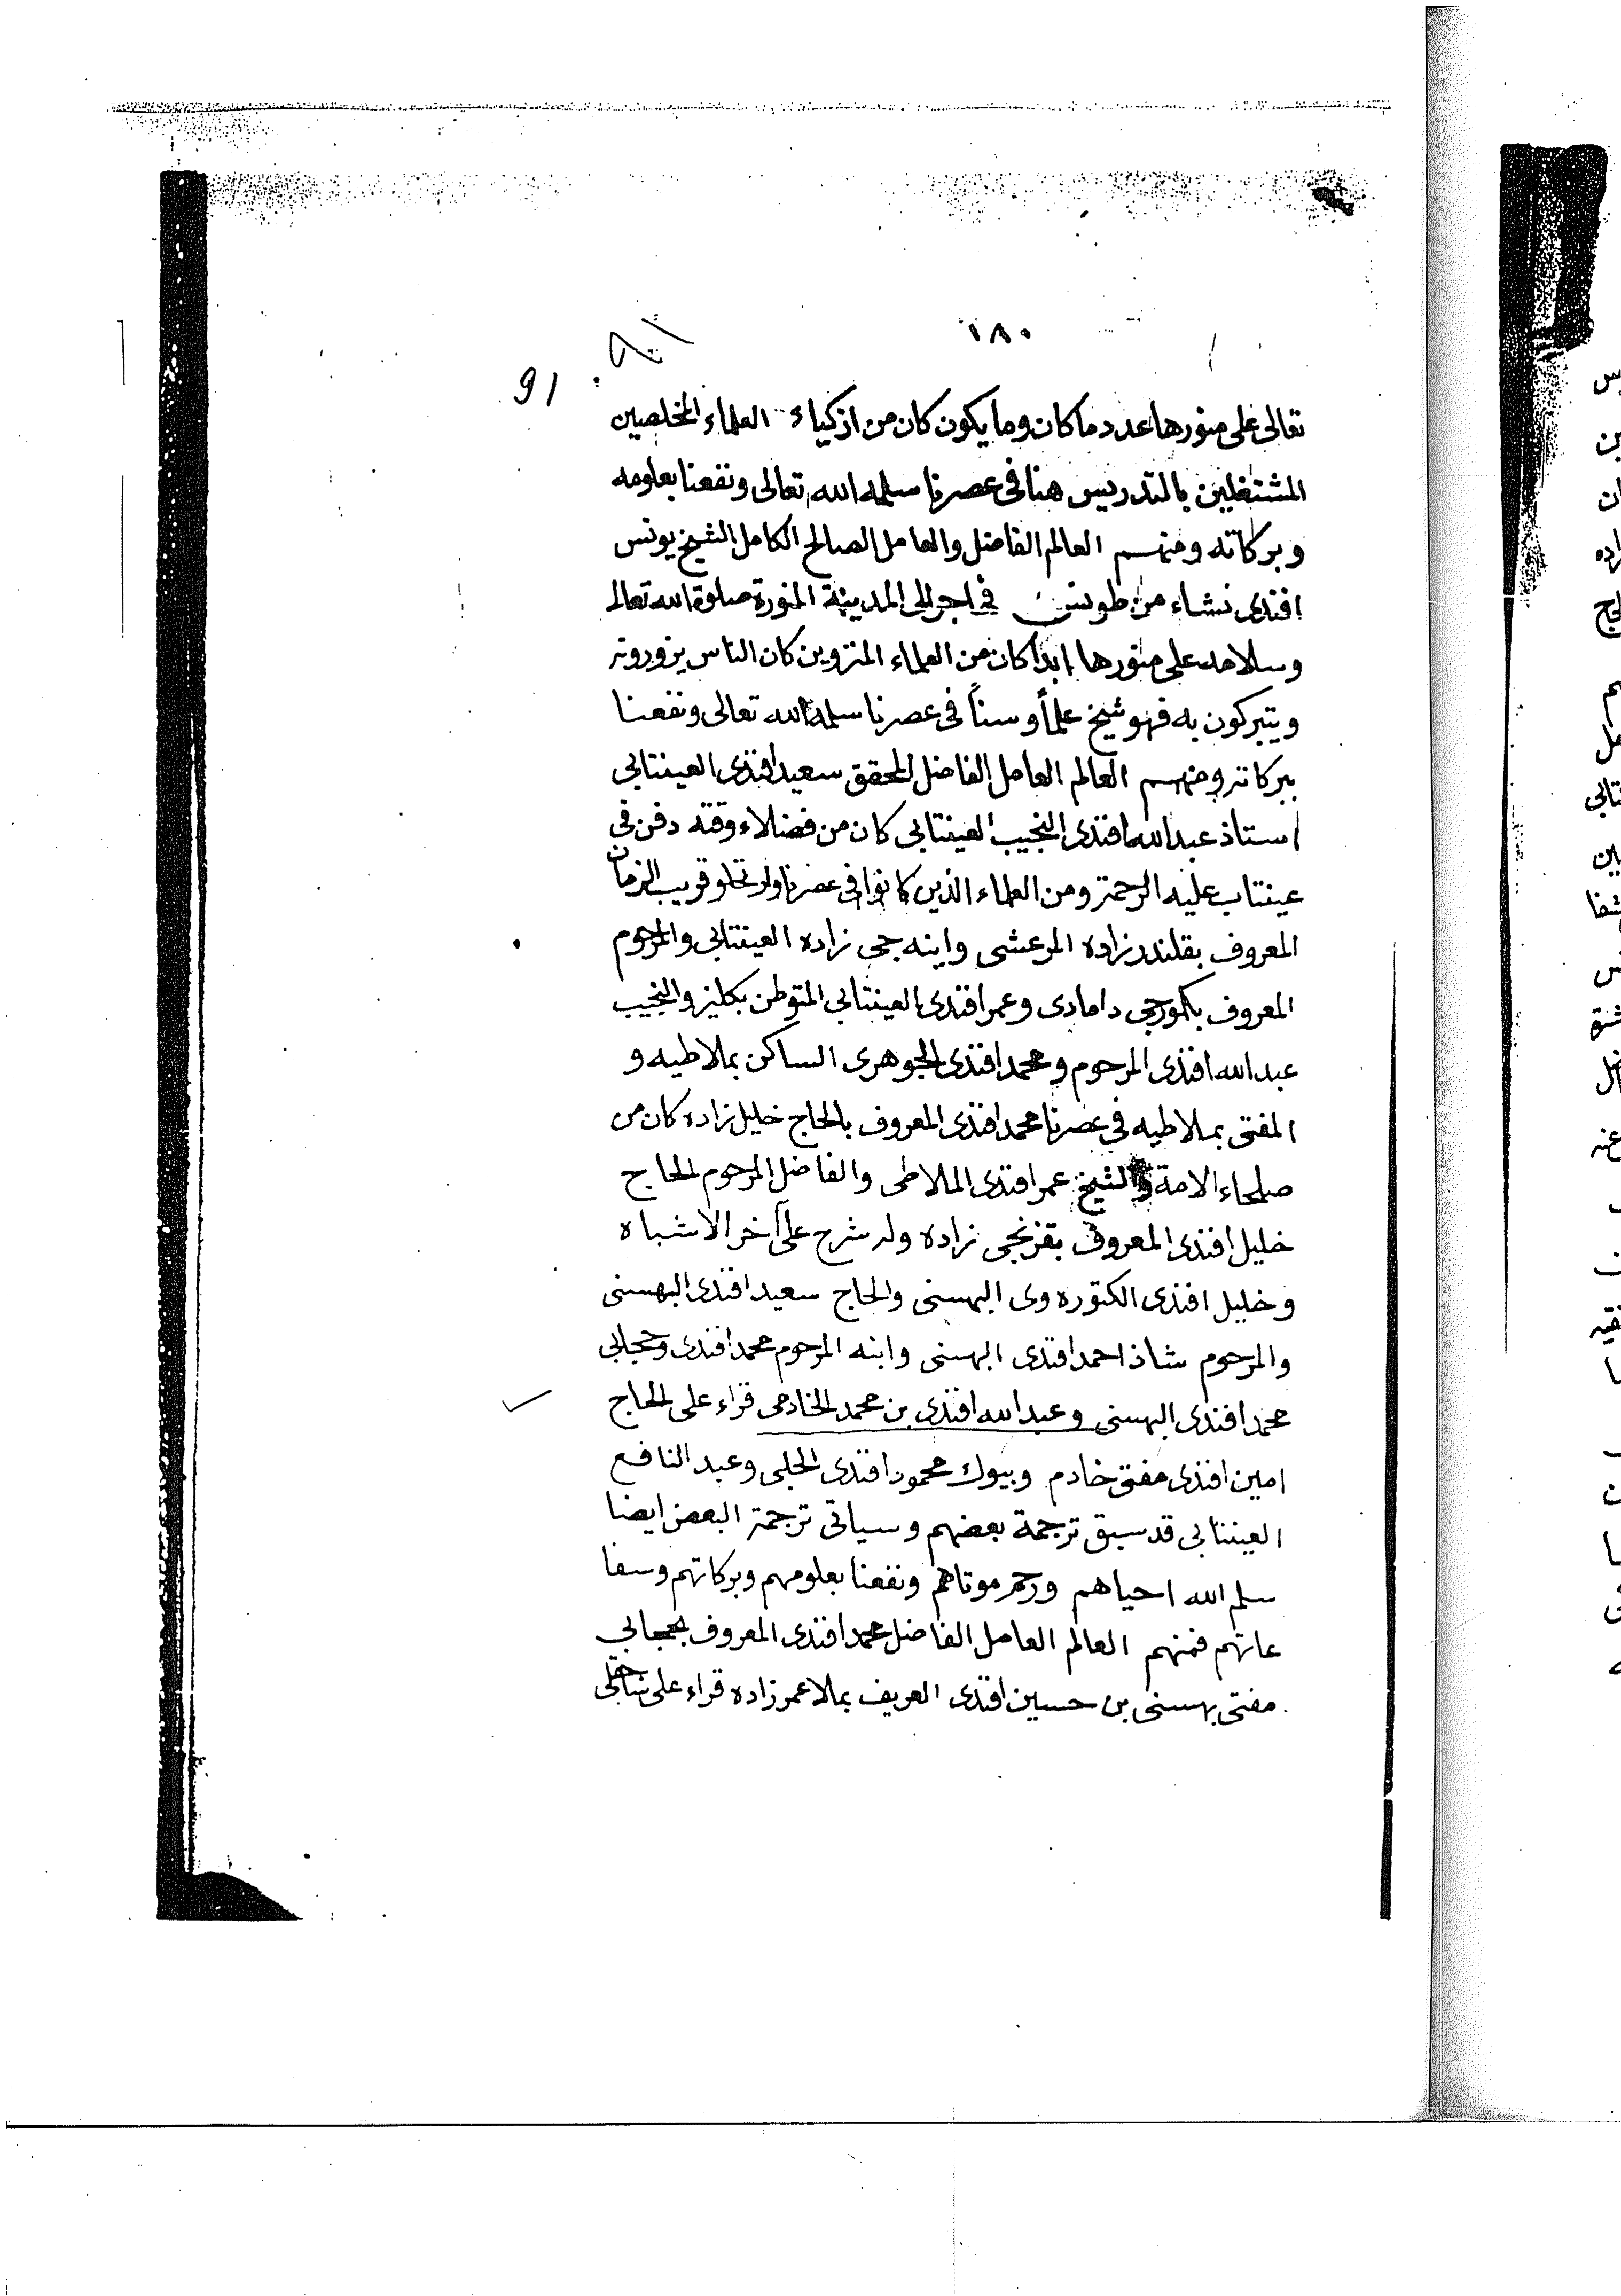 ١٨٠
91
تعالى على منورها عدد ما كان وما يكون كان من ازكياء العلماء المخلصين
المشتغلين بالتدريس هنا فى عصرنا سلمه الله تعالى ونفعنا بعلومه
وبركاته ومنهم العالم الفاضل والعامل الصالح الكامل الشيخ يونس
افندى نشاء من طونس الى المدينة المنورة صلوة الله تعالى
وسلامه على منورها ابدا كان من العلماء المنزوين كان الناس يزورونه
ويتبركون به فهو شيخ علماً وسناً فى عصرنا سلمه الله تعالى ونفعنا
ببركاته ومنهم العالم العامل الفاضل المحقق سعيد افندى العينتابى
استاذ عبد الله افندى النجيب العينتابى كان من فضلاء وقته دفن فى
عينتاب عليه الرحمة ومن العلماء الذين كانوا فى عصرنا قريب الزمان
المعروف بقلندر زاده المرعشى واينه جى زاده العينتابى والمرحوم
المعروف بكمورجى دامادى وعمر افندى العينتابى المتوطن بكليز والنجيب
عبد الله افندى المرحوم ومحمد افندى الجوهرى الساكن بملاطيه و
المفتى بملاطيه فى عصرنا محمد افندى المعروف بالحاج خليل زاده كان من
صلحاء الامة والشيخ عمر افندى الملاطى والفاضل المرحوم الحاج
خليل افندى المعروف بقزنجى زاده وله شرح على آخر الاشباه
وخليل افندى الكتوره وى البهسنى والحاج سعيد افندى البهسنى
والمرحوم شاذ احمد افندى البهسنى وابنه المرحوم محمد افندى وحجابى
محمد افندى البهسنى وعبد الله افندى بن محمد الخادمى قراء على الحاج
امين افندى مفتى خادم وبيوك محمود افندى الحلبى وعبد النافع
العينتابى قد سبق ترجمة بعضهم وسياتى ترجمة البعض ايضا
سلم الله احياهم ورحم موتاهم ونفعنا بعلومهم وبركاتهم وسفا
عاتهم فمنهم العالم العامل الفاضل محمد افندى المعروف بحجابى
مفتى بهسنى بن حسين افندى العريف بملا عمر زاده قراء على